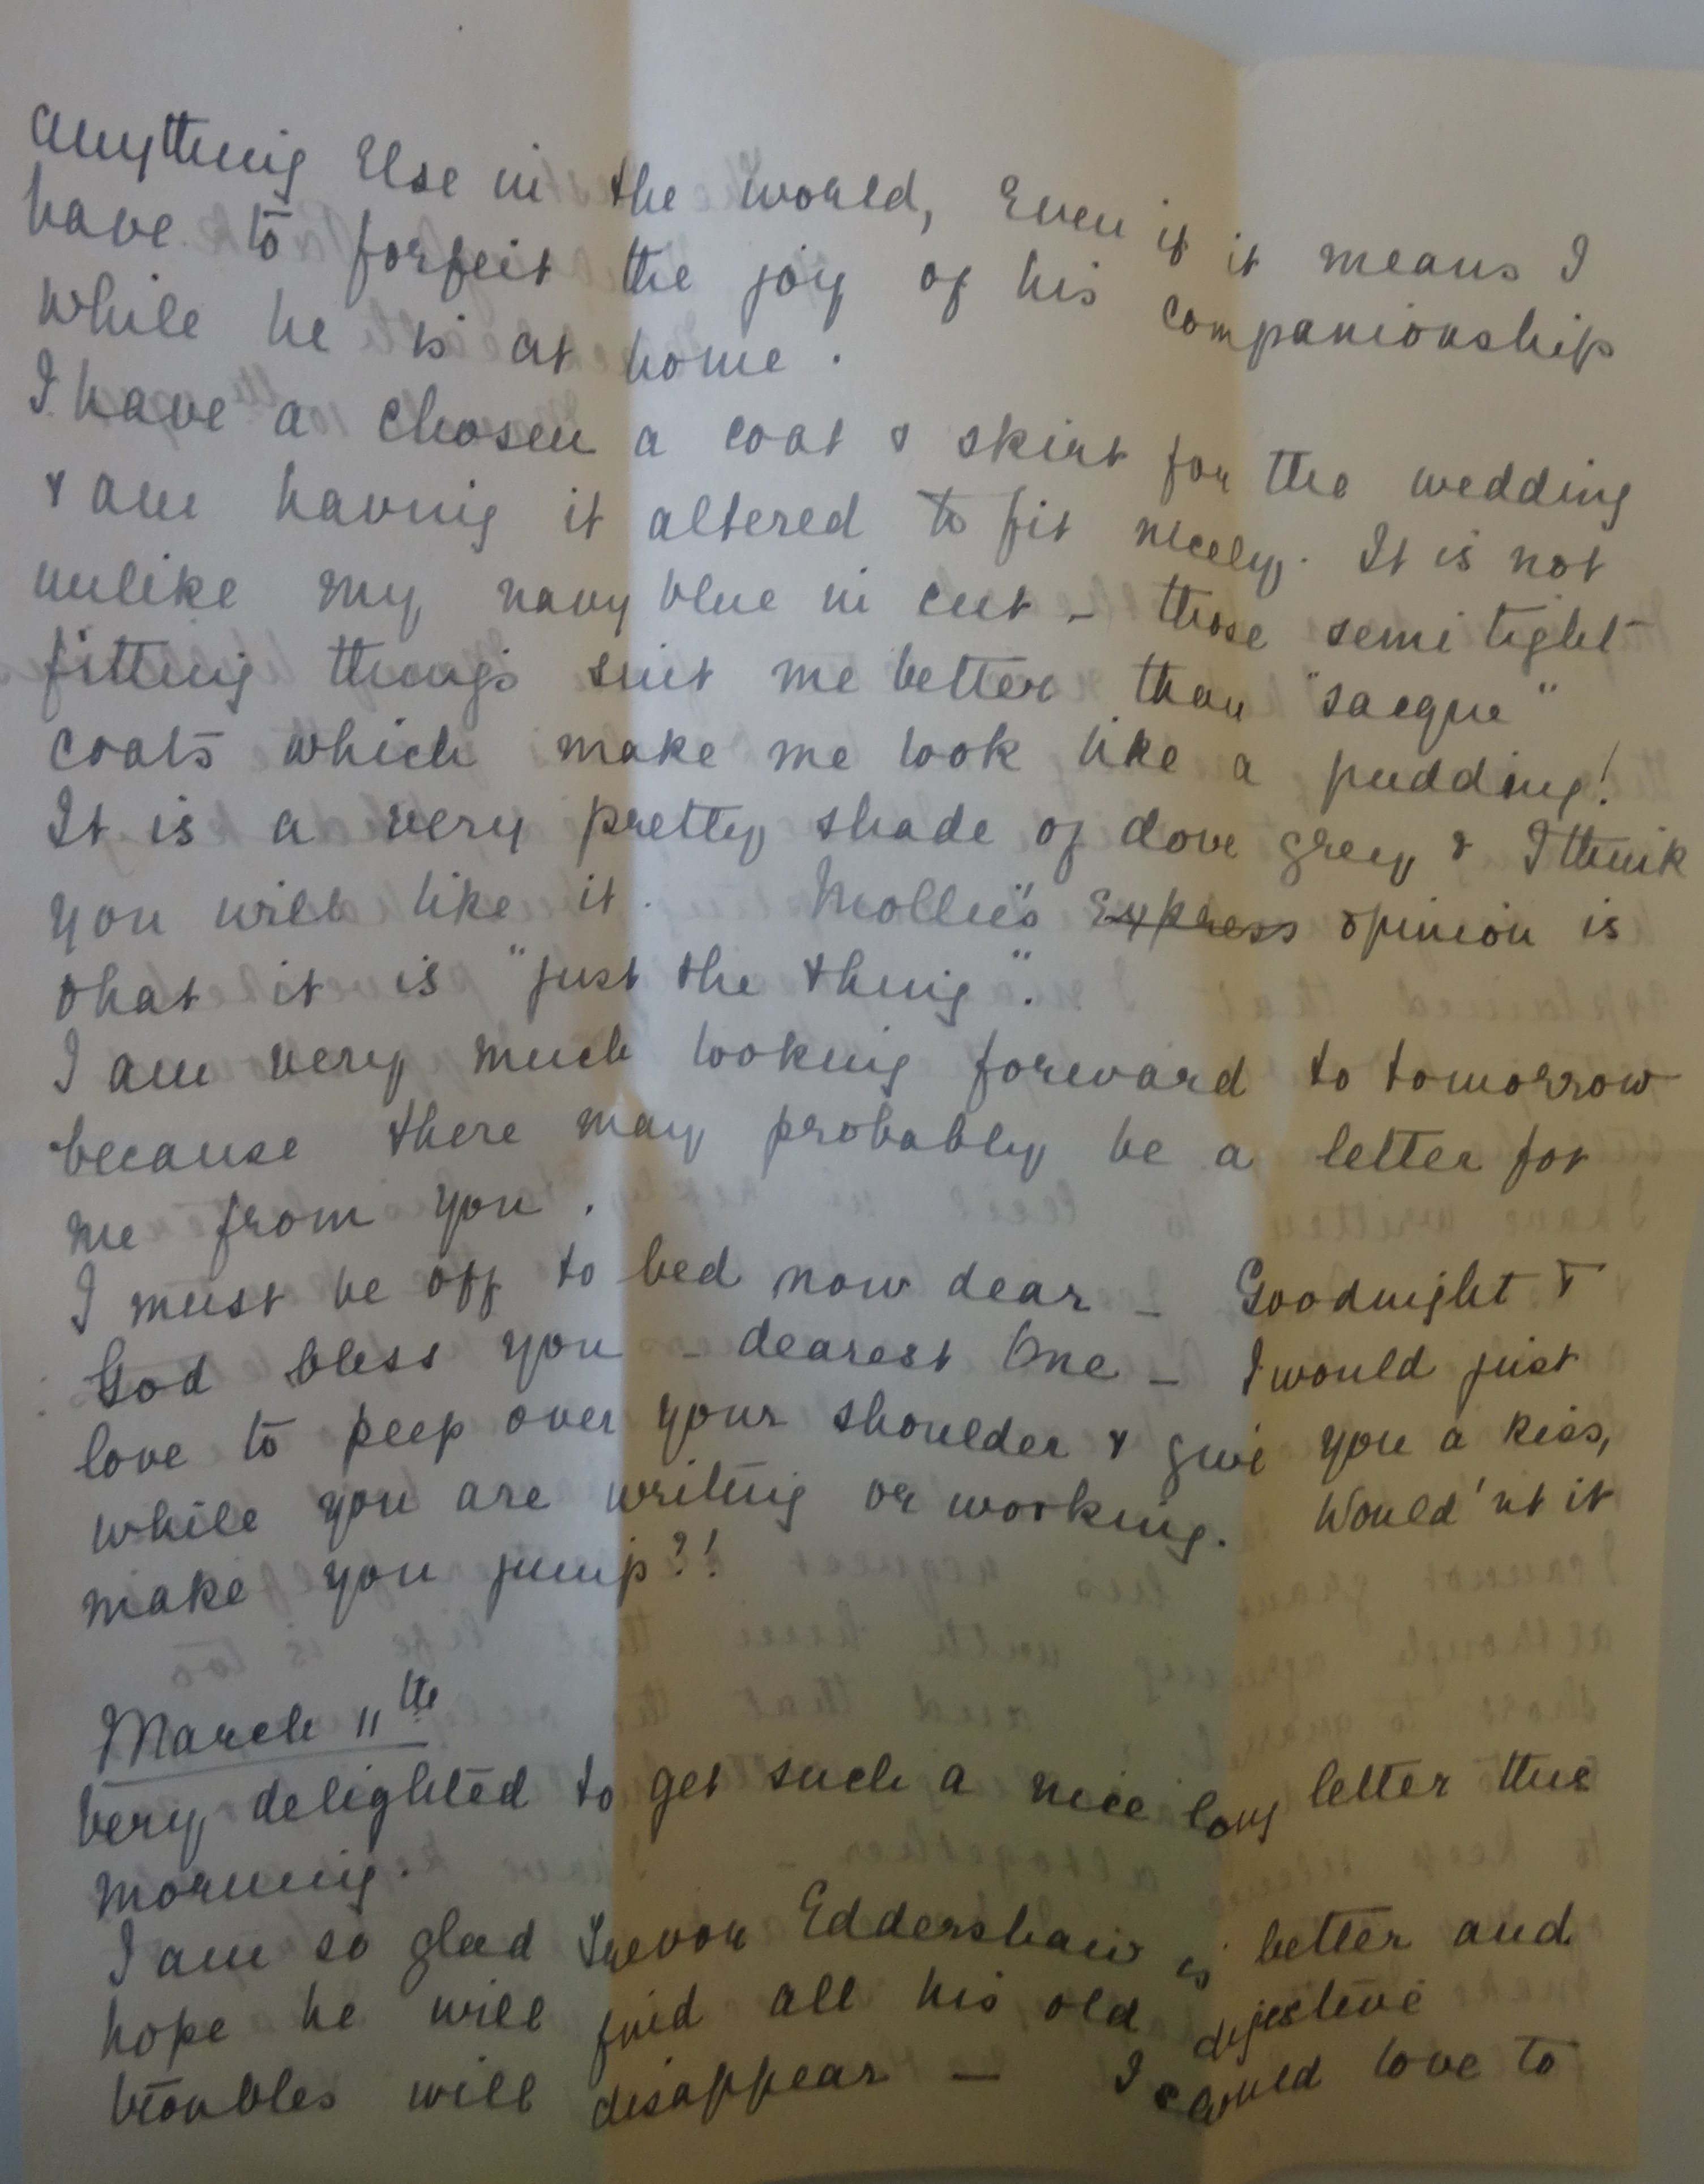 anything Else in the world, Even if it means I
have to forfeit the joy of his companionship
while he is at home.
I have a chosen a coat & skirt for the wedding
& am having it altered to fit nicely. It is not
unlike my navy blue in cut - those semi tight
fitting things suit me better than "sacque"
coats which make me look like a pudding!
It is a very pretty shade of dove grey & I think
you will like it. Mollie's Express opinion is
that it is "just the thing".
I am very much looking forward to tomorrow
because there may probably be a letter for
me from you.
I must be off to bed now dear - Goodnight &
God bless you - dearest One - I would just
love to peep over your shoulder & give you a kiss,
while you are writing or working. Would'nt it
make you jump?!
March 11th
Very delighted to get such a nice long letter this
morning.
I am so glad Trevor Eddershaw is better and
hope he will find all his old digestive
troubles will disappear - I would love to